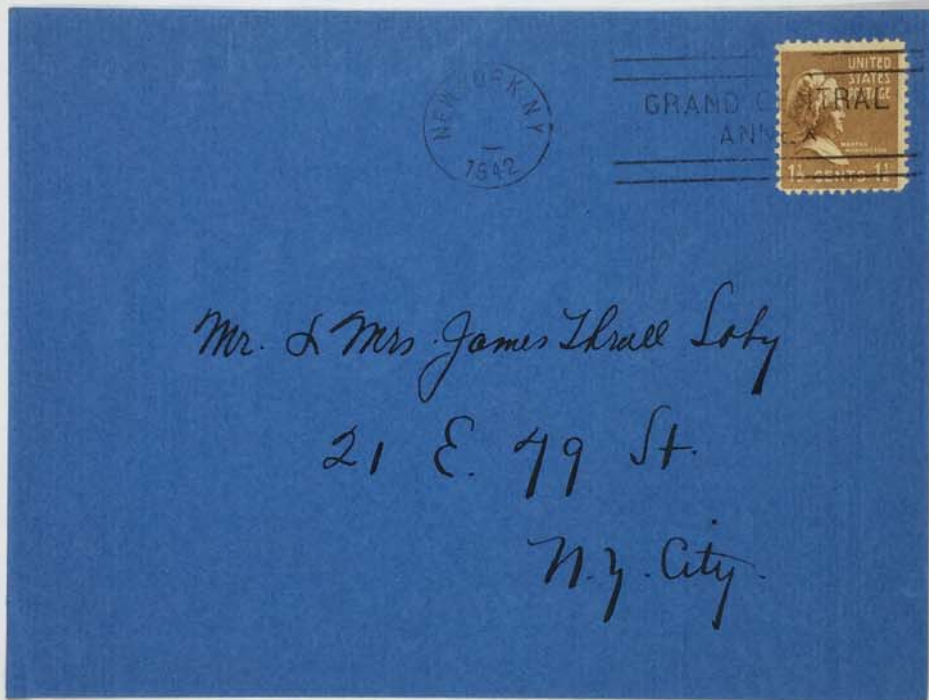 NEW YORK, N.Y.
1942
GRAND CENTRAL
ANNEX
UNITED
STATES
POSTAGE
MARTHA
WASHINGTON
1½ CENTS 1½
Mr. & Mrs. James Thrall Soby
21 E. 79 St.
N.Y. City.